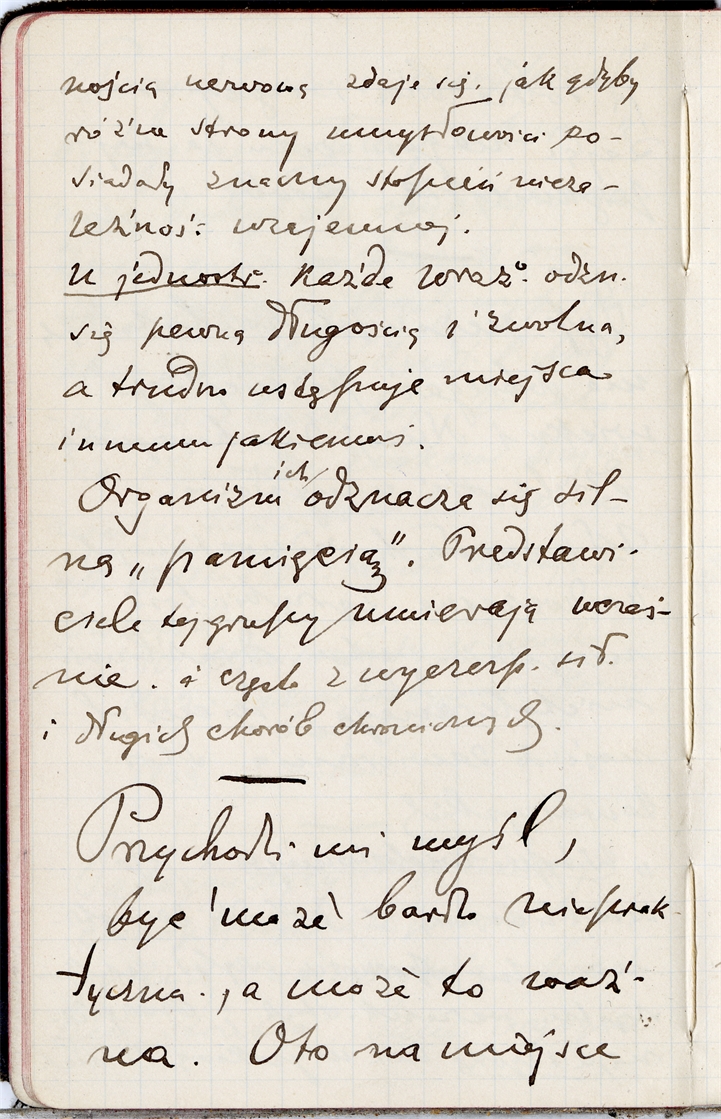 nością nerwową zdaje się, jak gdyby
różne strony umysłowości po-
siadały znaczny stopień nieza-
leżnoś: wzajemnej.
U jednostk. Każde wraż. odzn.
się pewną długością i zwolna,
a trudno ustępuje miejsca
innemu jakiemuś.
Organizm ich odznacza się sil-
ną „pamięcią”. Predstawi-
ciele tej grupy umierają wcześ-
nie. i często z wyczerp. sił.
i długich chorób chronicznych.
Przychodzi mi myśl,
być może bardzo nieprak-
tyczna, a może to waż-
na. Oto na miejsce